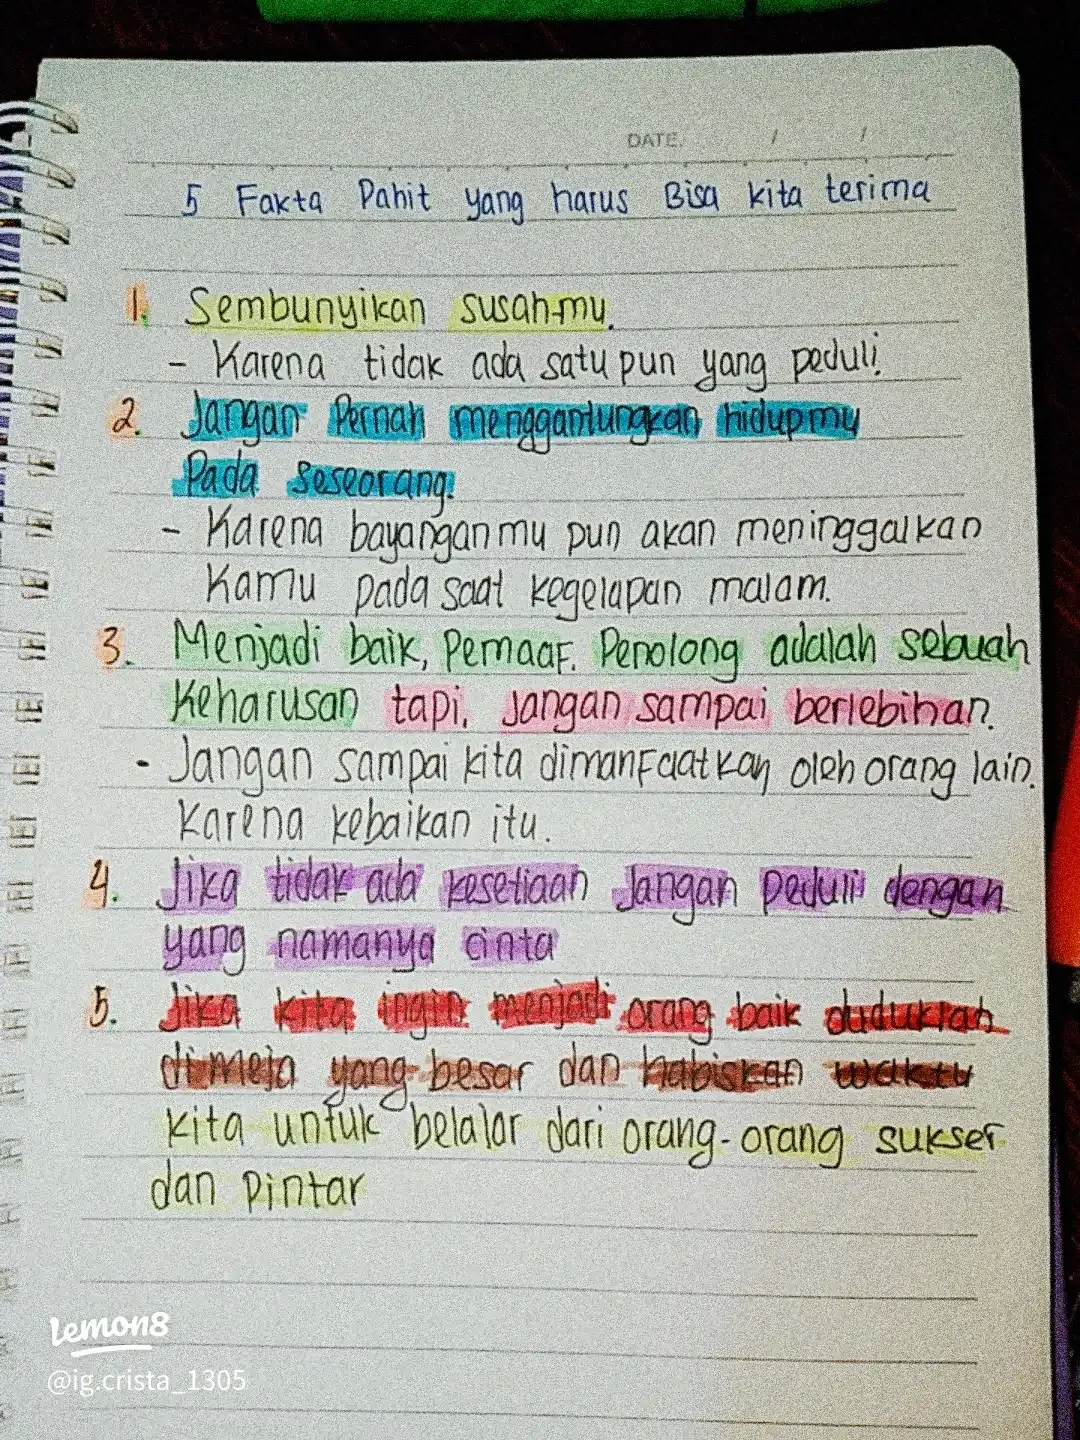 DATE. / /
5 Fakta Pahit yang harus Bisa kita terima
1. Sembunyikan susahmu.
- Karena tidak ada satu pun yang peduli.
2. Jangan Pernah menggantungkan hidupmu
Pada seseorang.
- Karena bayanganmu pun akan meninggalkan
kamu pada saat kegelapan malam.
3. Menjadi baik, Pemaaf. Penolong adalah sebuah
keharusan tapi. Jangan sampai berlebihan.
- Jangan sampai kita dimanfaatkan oleh orang lain.
karena kebaikan itu.
4. Jika tidak ada kesetiaan Jangan peduli dengan
yang namanya cinta
5. Jika kita ingin menjadi orang baik duduklah
di meja yang besar dan habiskan waktu
kita untuk belalar dari orang-orang sukser
dan pintar
Lemon8
@ig.crista_1305